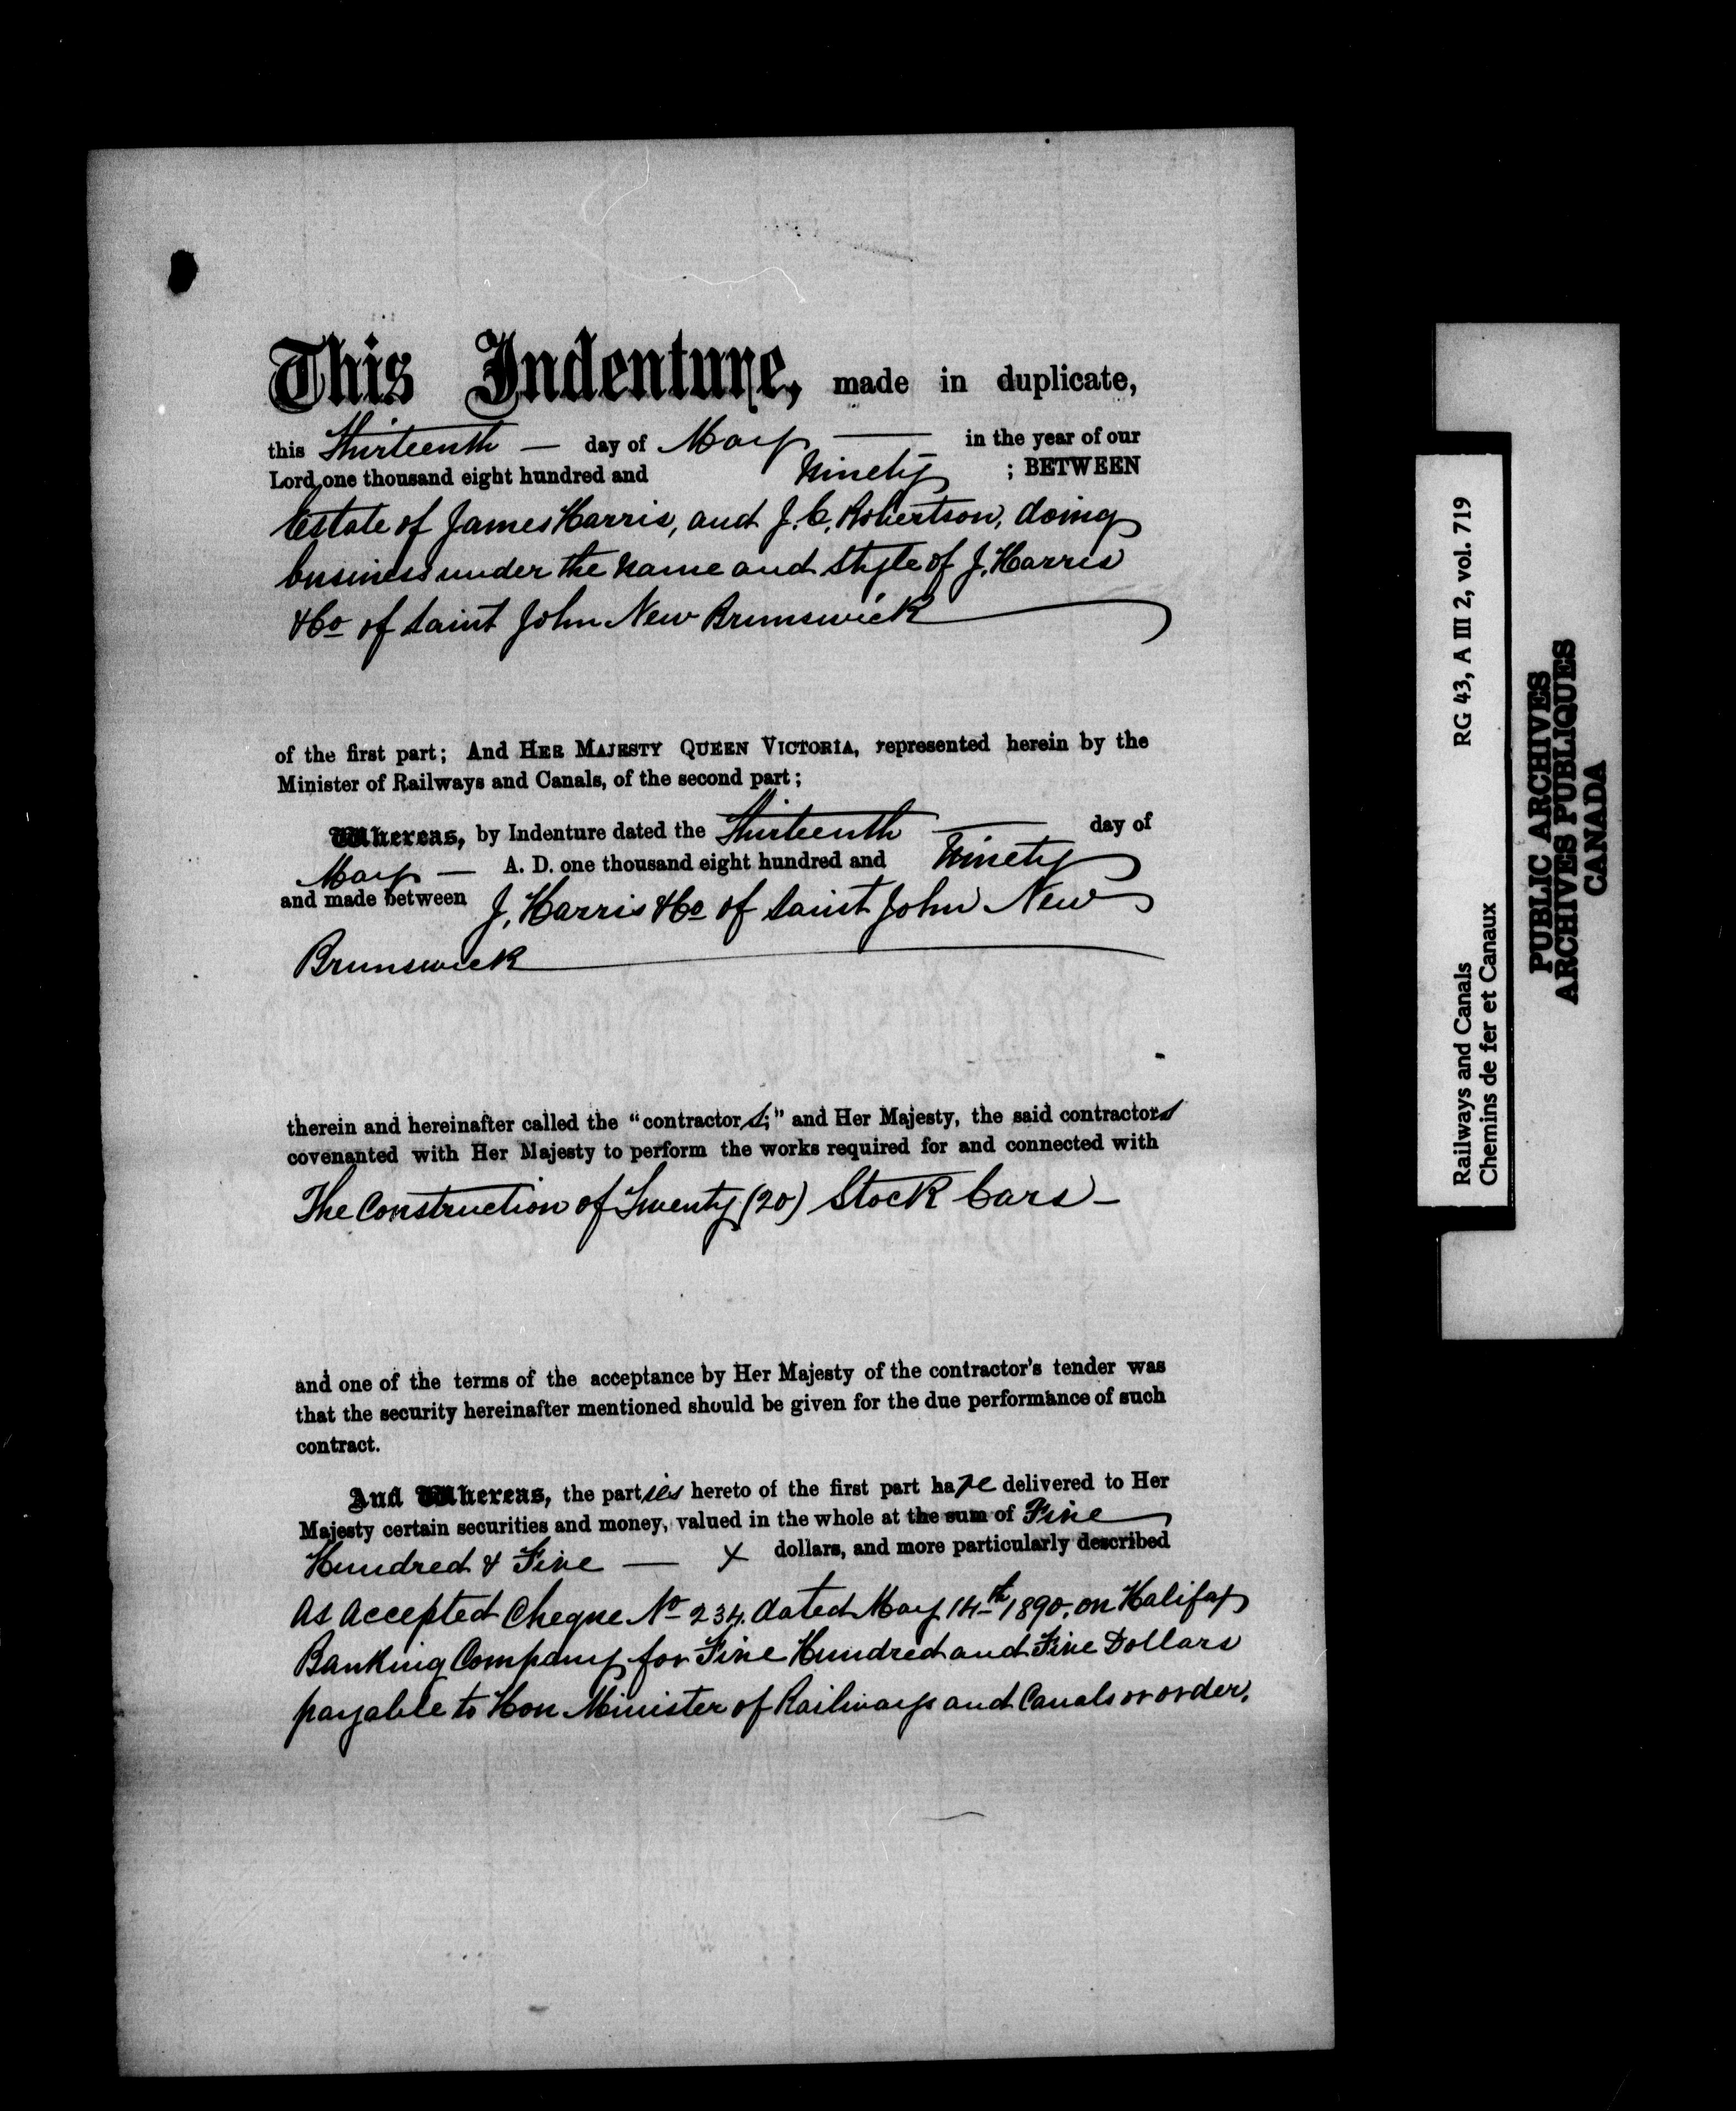 This Indenture, made in duplicate,
this Thirteenth — day of May — in the year of our
Lord one thousand eight hundred and Ninety ; BETWEEN
Estate of James Harris, and J. C. Robertson, doing
business under the name and style of J. Harris
& Co of Saint John New Brunswick
of the first part; And HER MAJESTY QUEEN VICTORIA, represented herein by the
Minister of Railways and Canals, of the second part;
Whereas, by Indenture dated the Thirteenth — day of
May — A. D. one thousand eight hundred and Ninety
and made between J. Harris & Co of Saint John New
Brunswick
therein and hereinafter called the "contractors;" and Her Majesty, the said contractors
covenanted with Her Majesty to perform the works required for and connected with
The Construction of Twenty (20) Stock Cars —
and one of the terms of the acceptance by Her Majesty of the contractor's tender was
that the security hereinafter mentioned should be given for the due performance of such
contract.
And Whereas, the parties hereto of the first part have delivered to Her
Majesty certain securities and money, valued in the whole at the sum of Five
Hundred & Five — x dollars, and more particularly described
As Accepted Cheque No 234. dated May 14th 1890. on Halifax
Banking Company for Five Hundred and Five Dollars
payable to Hon Minister of Railways and Canals or order.
Railways and Canals RG 43, A III 2, vol. 719
Chemins de fer et Canaux
PUBLIC ARCHIVES
ARCHIVES PUBLIQUES
CANADA